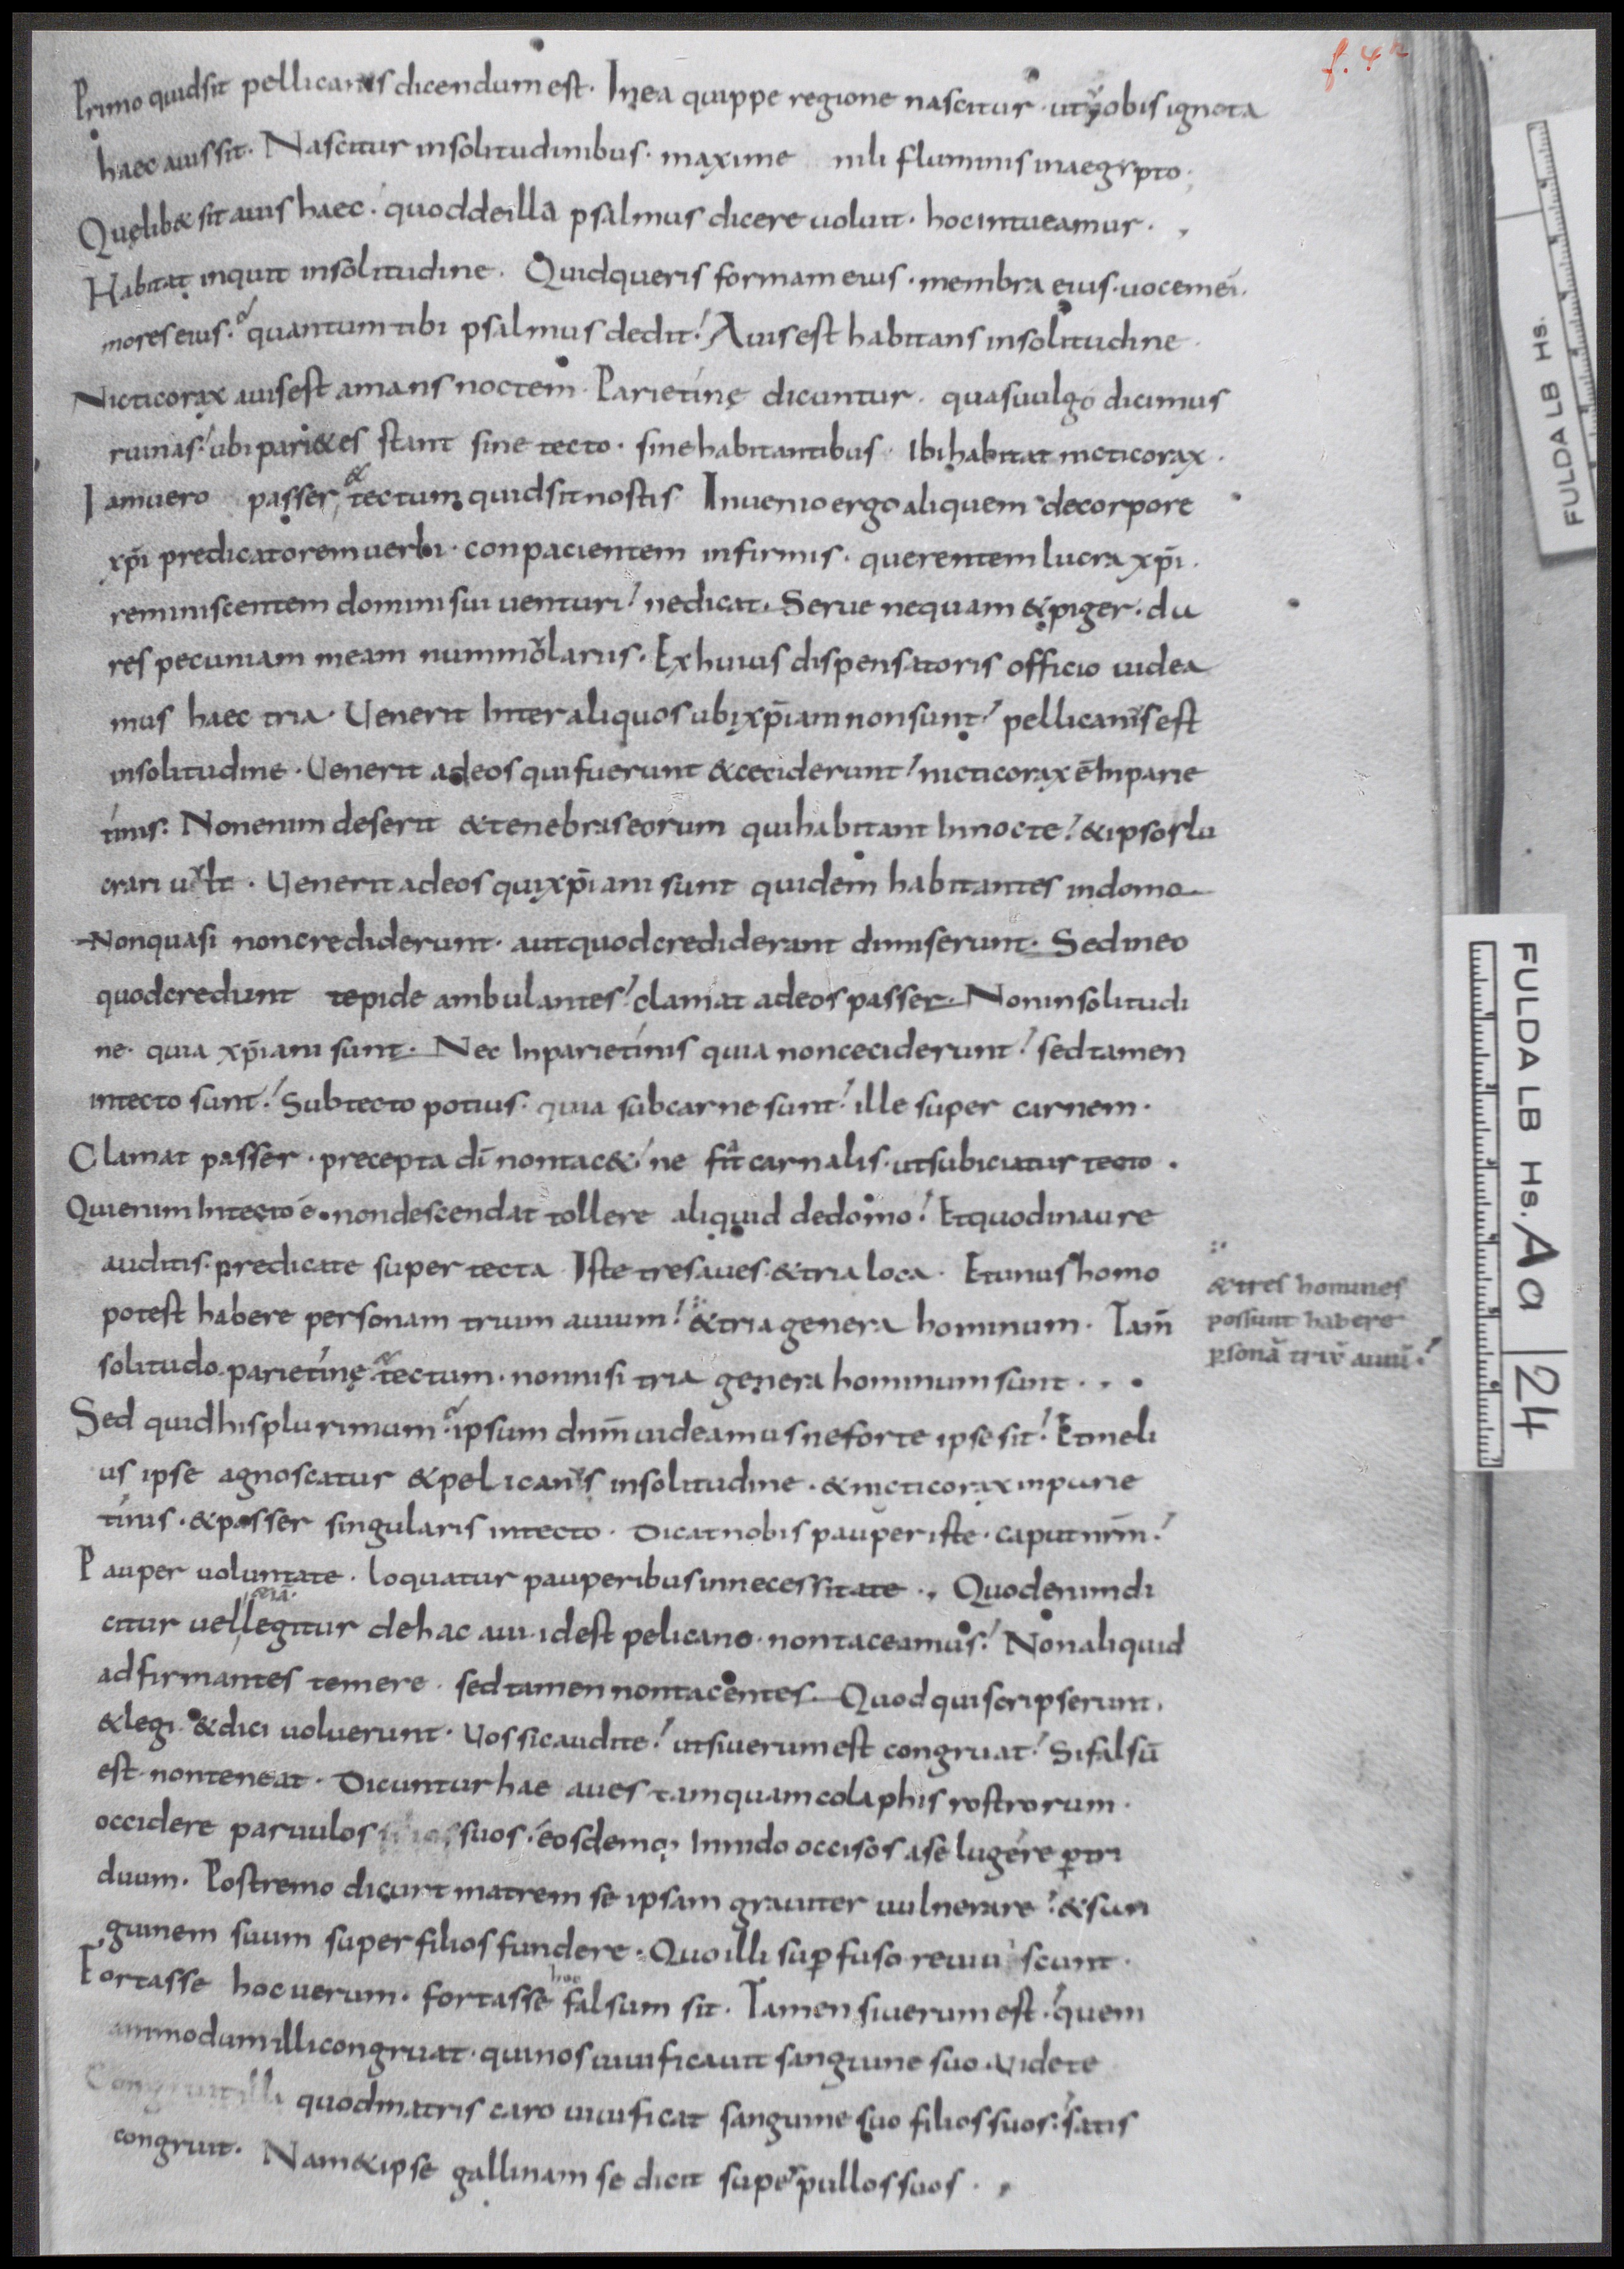 f. 4r
Primo quidsit pellicanus dicendum est. In ea quippe regione nascitur. ut vobis ignota
haec auis sit. Nascitur insolitudinibus. maxime nili fluminis inaegypto.
Quęlib& sit auis haec. quoddeilla psalmus dicere uoluit. hoc intueamur.
Habitat inquit insolitudine. Quidqueris formam eius. membra eius. uocem ei.
mores eius. quantum tibi psalmus dedit. Auis est habitans insolitudine.
Nicticorax auis est amans noctem. Parietinę dicuntur. quasuulgo dicimus
ruinas. ubi pari&es stant sine tecto. sinehabitantibus. Ibi habitat nicticorax.
Iamuero passer & tectum quidsit nostis Inuenio ergo aliquem decorpore
xp̄i predicatorem uerbi. conpacientem infirmis. querentem lucra xp̄i.
reminiscentem domini sui uenturi. nedicat. Serue nequam & piger. da
res pecuniam meam nummolariis. Exhuius dispensatoris officio uidea
mus haec tria. Uenerit Inter aliquos ubi xp̄iani non sunt. pellicanus est
insolitudine. Uenerit adeos qui fuerunt & ceciderunt. nicticorax ē Inparie
tinis. Nonenim deserit & tenebras eorum quihabitant Innocte. & ipsos lu
crari uult. Uenerit adeos qui xp̄iani sunt quidem habitantes indomo
Nonquasi noncrediderunt. aut quod crediderant dimiserunt. Sed ineo
quodcredunt tepide ambulantes. clamat adeos passer. Non insolitudi
ne. quia xp̄iani sunt. Nec Inparietinis quia nonceciderunt. sed tamen
intecto sunt. Subtecto potius. quia subcarne sunt. ille super carnem.
Clamat passer. precepta dī nontac&. ne fiat carnalis. utsubiciatur tecto.
Quienim Intecto ē. nondescendat tollere aliquid dedomo. Et quodinaure
auditis. predicate super tecta Iste tres aues. & tria loca. Et unus homo
potest habere personam trium auium. & tria genera hominum. Tam̄
& tres homines
possunt habere
p̱sonā triū auiū.
solitudo. parietinę & tectum. nonnisi tria genera hominum sunt.
Sed quid his plurimum. ipsum dn̄m uideamus neforte ipse sit. Et meli
us ipse agnoscatur & pelicanus insolitudine. & nicticorax inparie
tinis. & passer singularis intecto. Dicat nobis pauper iste. caput nr̄m.
Pauper uoluntate. loquatur pauperibus innecessitate. Quodenim di
citur uel legitur dehac aui. idest pelicano. nontaceamus. Non aliquid
adfirmantes temere. sed tamen nontacentes. Quod qui scripserunt.
& legi & dici uoluerunt. Uos sicaudite. utsiuerum est congruat. Sifalsū
est. nonteneat. Dicuntur hae aues tamquam colaphis rostrorum.
occidere paruulos suos. eosdemq; Innido occisos ase lugere p̱ tri
duum. Postremo dicunt matrem se ipsam grauiter uulnerare. & san
guinem suum super filios fundere. Quo illi sup̱fuso reuiuiscunt.
Fortasse hoc uerum. fortasse hoc falsum sit. Tamen siuerum est. quem
ammodum illi congruat. qui nos uiuificauit sanguine suo. uidete
Congruit illi quodmatris caro uiuificat sanguine suo filios suos. satis
congruit. Nam & ipse gallinam se dicit super pullos suos.
FULDA LB Hs.
FULDA LB Hs. Aa 24